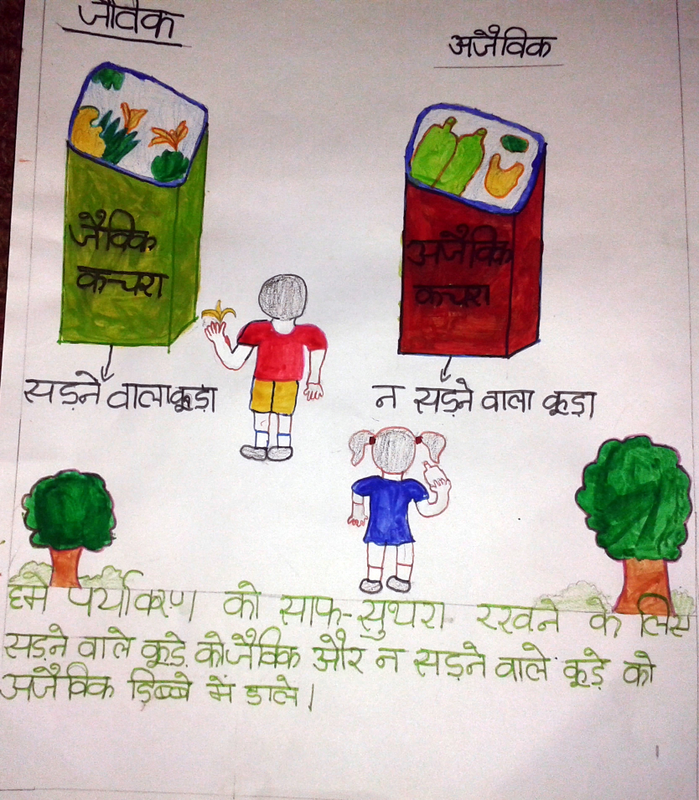 जैविक
अजैविक
जैविक
कचरा
अजैविक
कचरा
सड़ने वाला कूड़ा
न सड़ने वाला कूड़ा
हमे पर्यावरण को साफ-सुथरा रखने के लिस
सड़ने वाले कूड़े को जैविक और न सड़ने वाले कूड़े को
अजैविक ड़िब्बे में डाले।